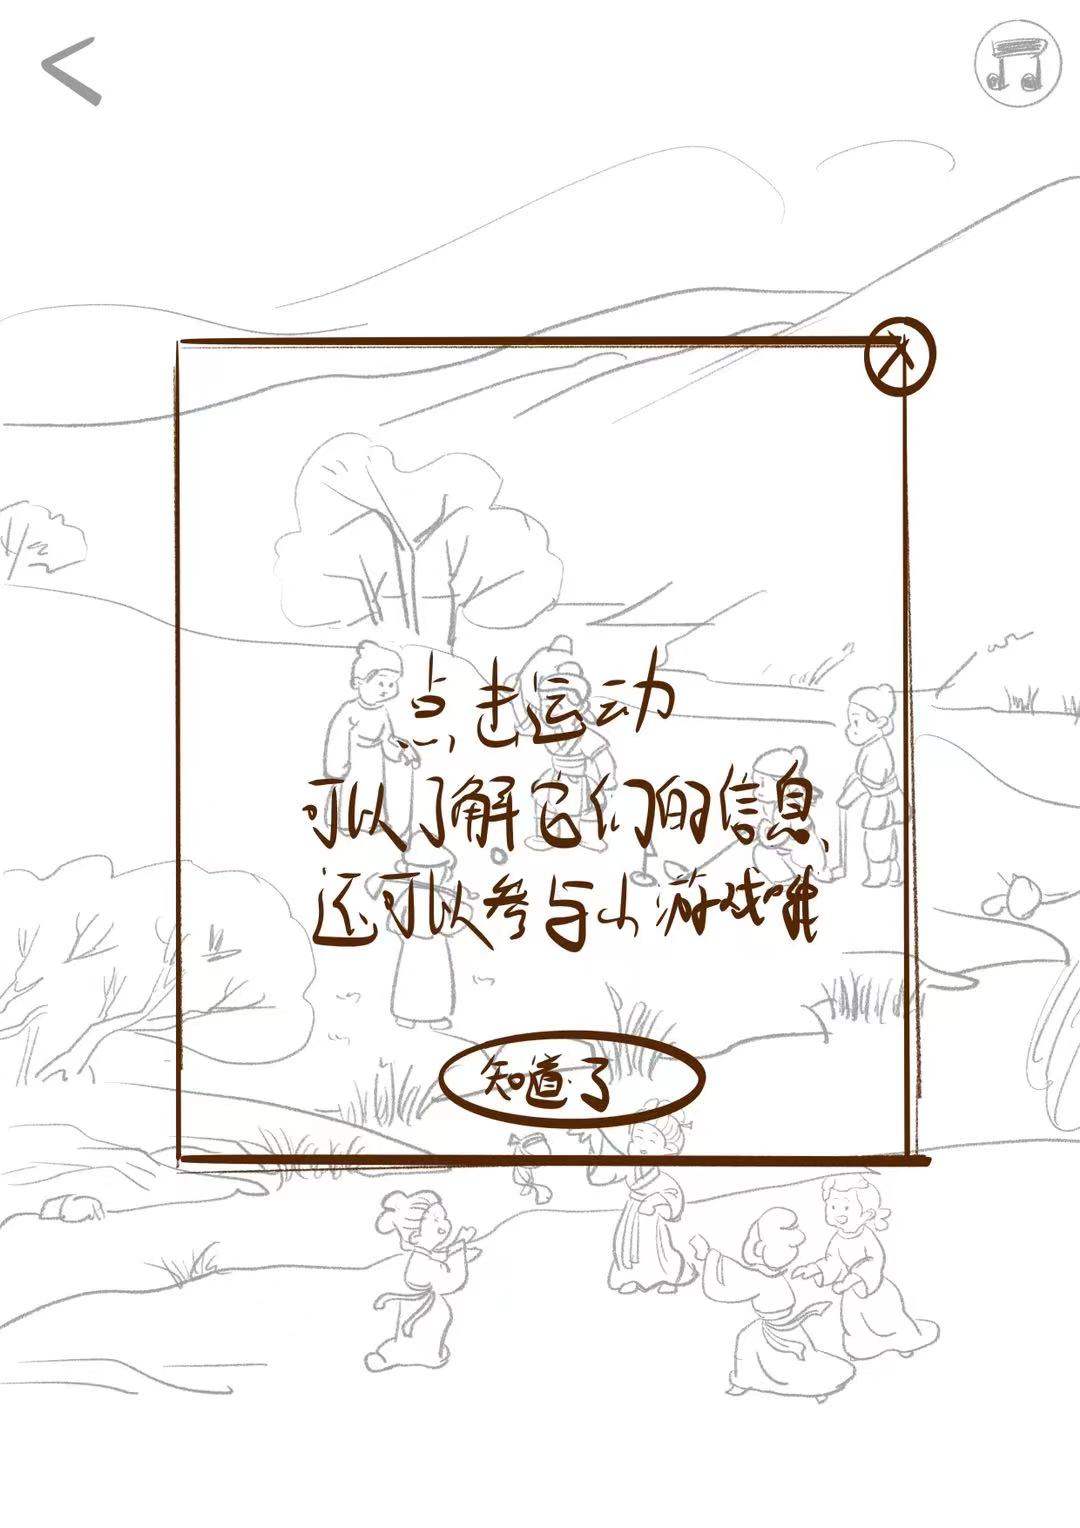 点击运动
可以了解它们的信息
还可以参与小游戏哦
知道了